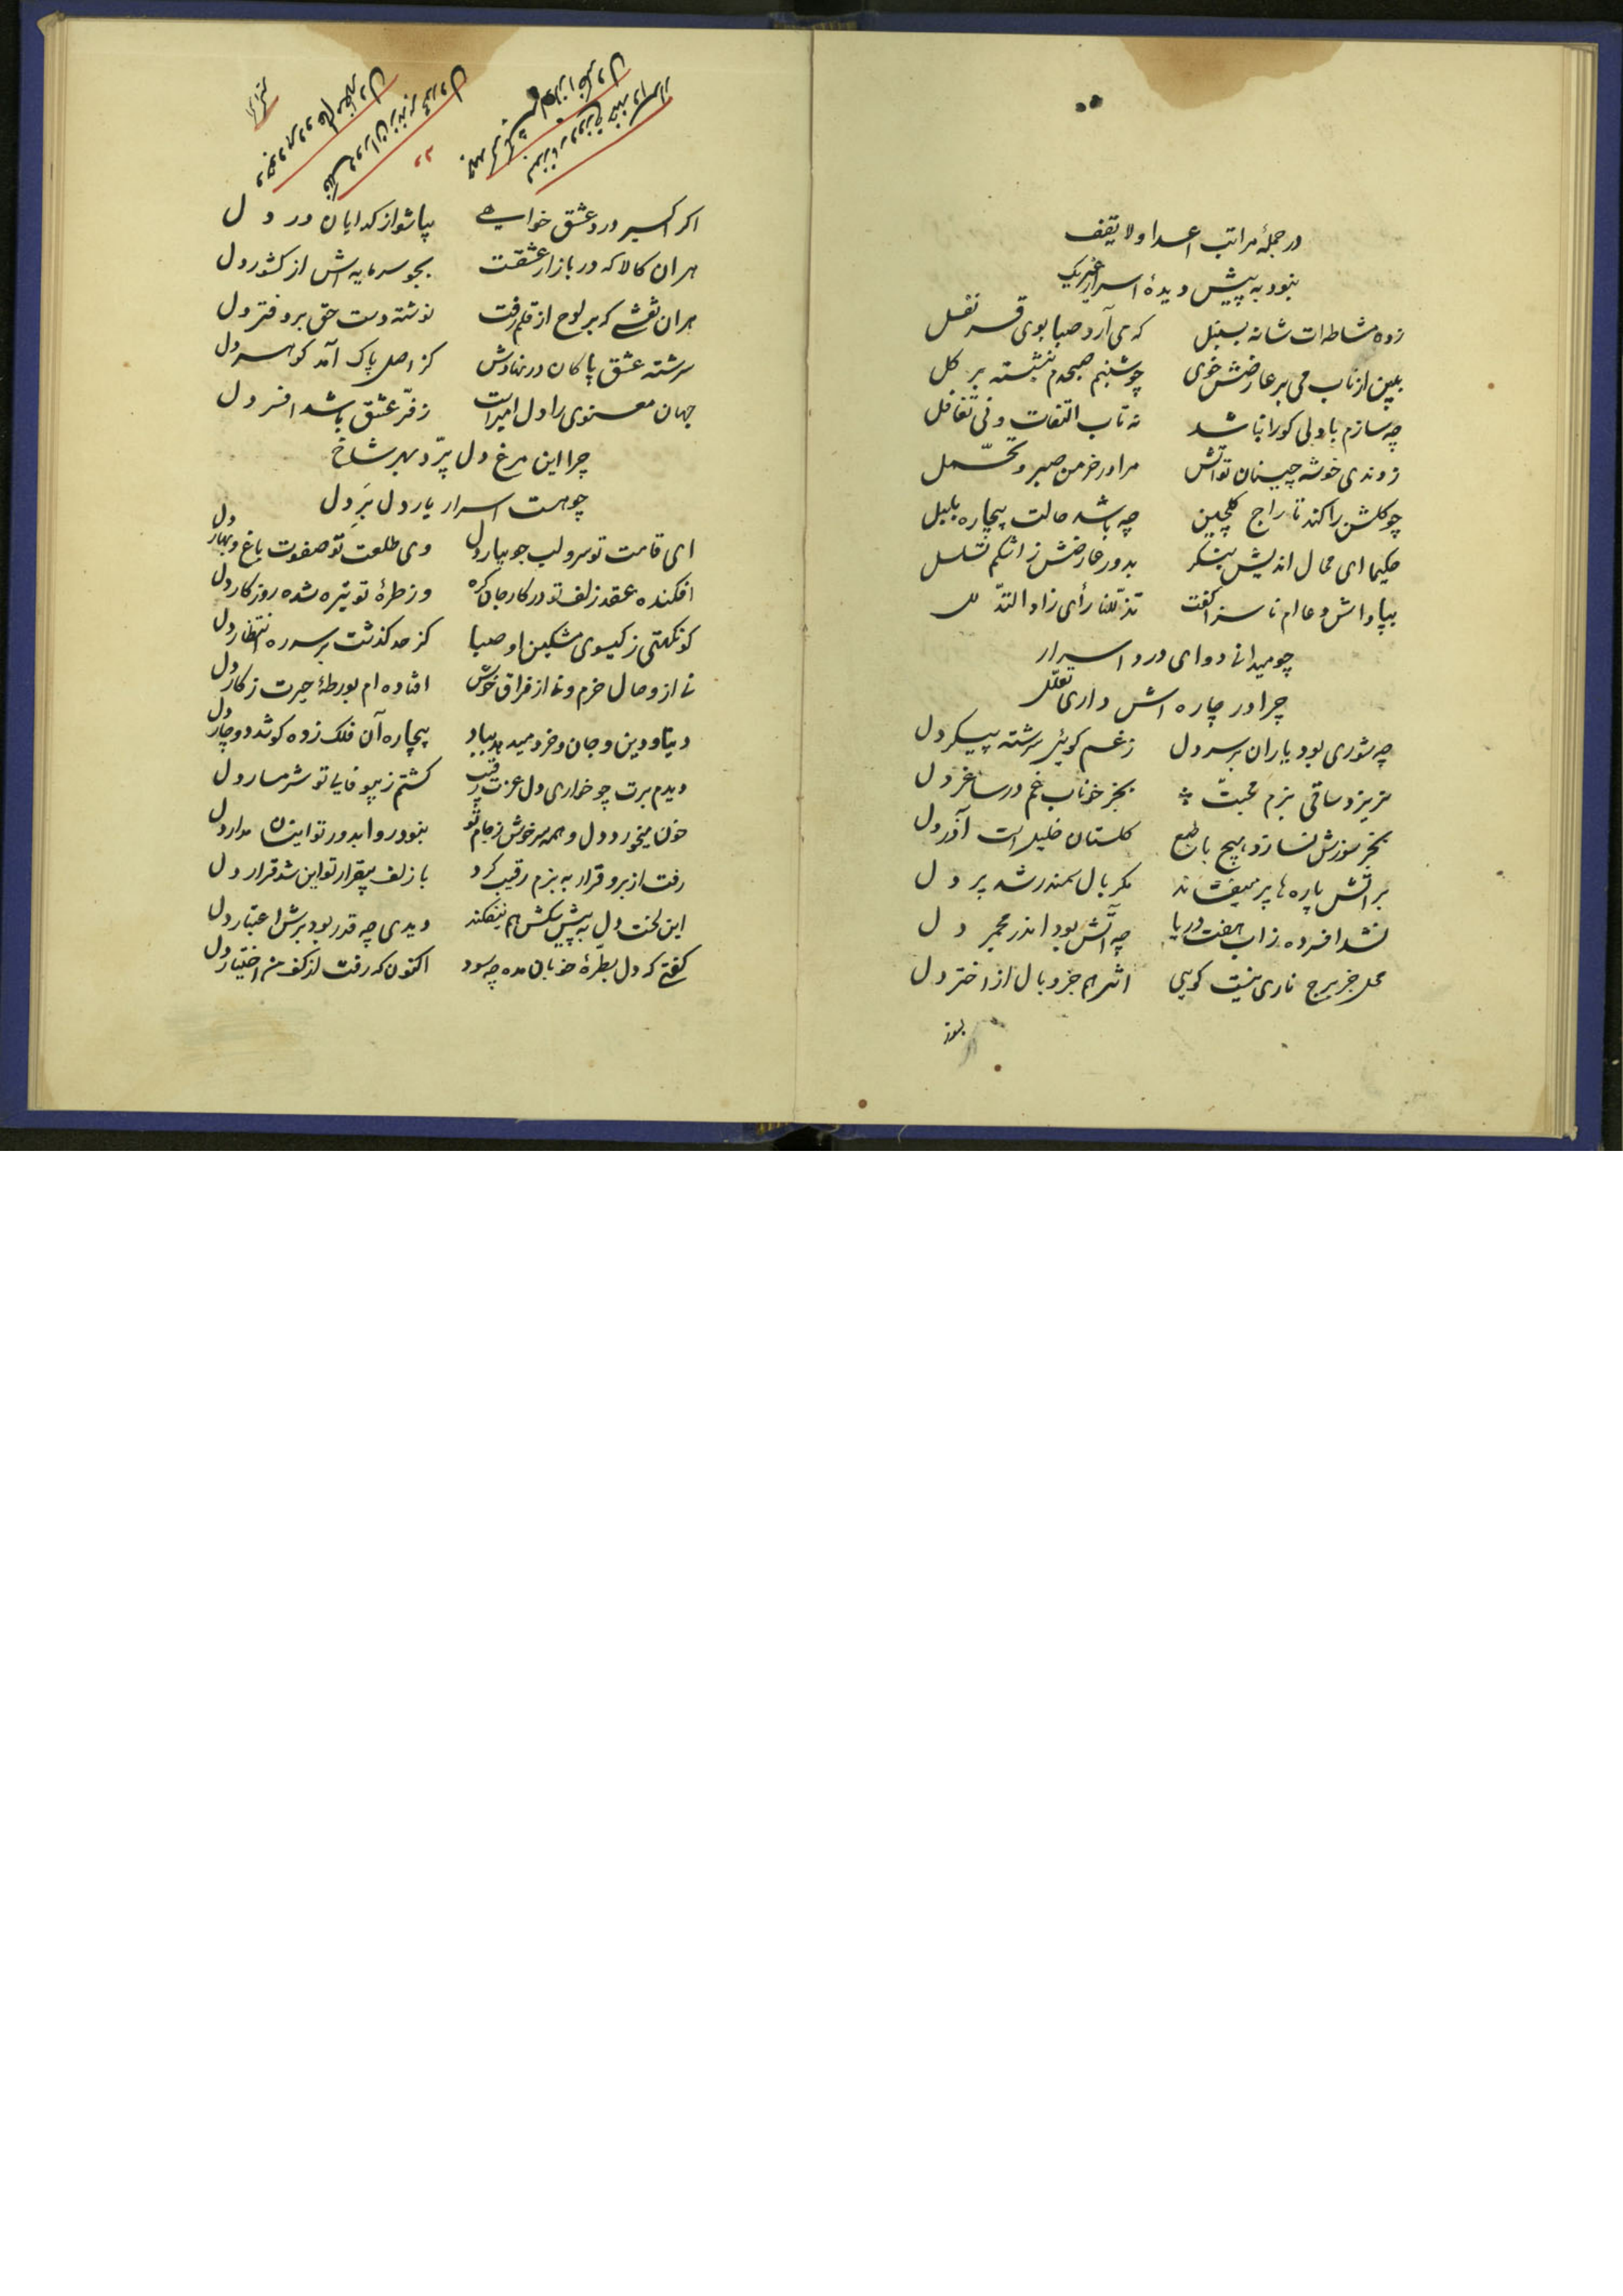 در جملهٔ مراتب اعداد لا یقف
نبود به پیش دیدهٔ اسرار غیر یک
زده مشاطه‌ات شانه بسنبل که می آرد صبا بوی قرنفل
ببین از تاب می بر عارضش خوی چو شبنم صبحدم بنشسته بر کل
چه سازم با دلی کو را نباشد نه تاب التفات و نی تغافل
زوندی خوشه چینان تو آتش مرا در خرمن صبر و تحمّل
چو کلشن را کند تاراج کلچین چه باشد حالت بیچاره بلبل
حکیما ای محال اندیش بنکر بدور عارضش ز اشکم تسلسل
بپاداش دعا ام ناسزا کفت تذلّلنا رأی زاد التدلل
چو میدانی دوای درد اسرار
چرا در چاره اش داری تعلّل
چه شوری بود یاران بر سر دل ز غم کوئی سرشته پیکر دل
نریزد ساقی بزم محبت بجز خوناب غم در ساغر دل
بجز سوزش نسازد هیچ با طبع کلستان خلیل است آذر دل
بر آتش پاره ها پر میفشاند مکر بال سمندر شد پر دل
نشد افسرده ز آب هفت دریا چه آتش بود اندر مجمر دل
محل جز برج ناری نیست کویی اثر هم جز وبال از اختر دل
کنار
وجود هر دو عالم مظهر دل
فلک دوران زند بر محور دل
اکر اکسیر درد عشق خواهی بپا شو از کدایان در دل
هر ان کالا که در بازار عشقت بجو سرمایه اش از کشور دل
هر ان نقشی که بر لوح از قلم رفت نوشته دست حق بر دفتر دل
سرشته عشق پاکان در نهادش کز اصل پاک آمد کوهر دل
جهان معنوی را دل امیر است ز فرّ عشق باشد افسر دل
چرا این مرغ دل پرّد بهر شاخ
چو هست اسرار یار دل بَرِ دل
ای قامت تو سرو لب جویبار دل وی طلعت تو صفوت باغ و بهار دل
افکنده عقد زلف تو در کار جان کره وز طرهٔ تو تیره شده روزکار دل
کو نکهتی ز کیسوی مشکین او صبا کز حد کذشت بر سر ره انتظار دل
نی از وصال خرم و نی از فراق خوش افتاده ام بورطهٔ حیرت ز کار دل
دنیا و دین و جان و خرد میدهد بباد بیچاره آن فلک زده کو شد دوچار دل
دیدم برت چو خواری دل عزت رقیب کشتم ز بیوفایی تو شرمسار دل
خون میخورد دل و همه سرخوش ز جام تو نبود روا بدور تو اینسان مدار دل
رفت از برو قرار به بزم رقیب کرد با زلف بیقرار تو این شد قرار دل
این لخت دل به پیش سکش هم نیفکند دیدی چه قدر بود برش اعتبار دل
کفتی که دل بطرّهٔ خوبان مده چه سود اکنون که رفت از کف من اختیار دل